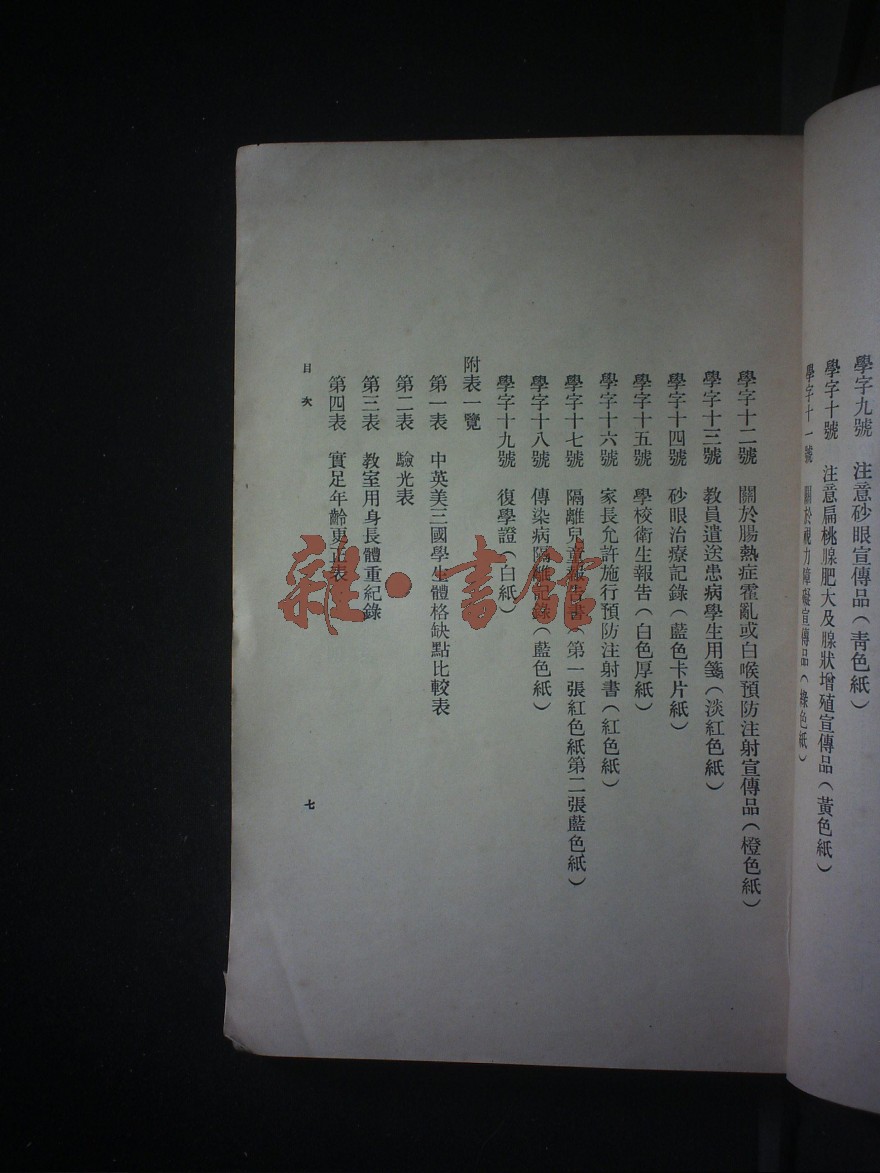 學字九號 注意砂眼宣傳品(青色紙)
學字十號 注意扁桃腺肥大及腺狀增殖宣傳品(黃色紙)
學字十一號 關於視力障礙宣傳品(綠色紙)
學字十二號 關於腸熱症霍亂或白喉預防注射宣傳品(橙色紙)
學字十三號 教員遣送患病學生用箋(淡紅色紙)
學字十四號 砂眼治療記錄(藍色卡片紙)
學字十五號 學校衛生報告(白色厚紙)
學字十六號 家長允許施行預防注射書(紅色紙)
學字十七號 隔離兒童報告書(第一張紅色紙第二張藍色紙)
學字十八號 傳染病隔離記錄(藍色紙)
學字十九號 復學證(白紙)
附表一覽
第一表 中英美三國學生體格缺點比較表
第二表 驗光表
第三表 教室用身長體重紀錄
第四表 實足年齡更正表
目次
七
雜·書館